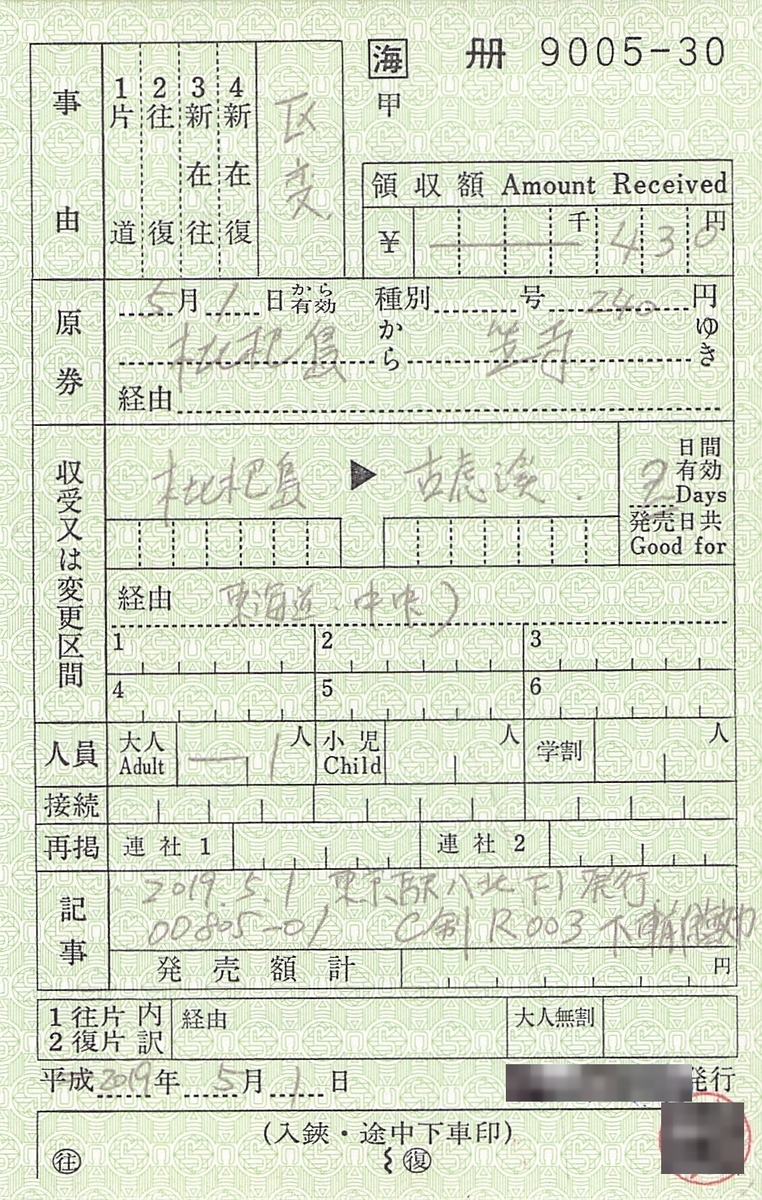 海 冊 9005-30
甲
事由
1片道
2往復
3新在往
4新在復
区変
領収額 Amount Received
¥ 千 430 円
原券
5月1日から有効 種別 号 240円
枇杷島から 笠寺 ゆき
経由
収受又は変更区間
枇杷島 ▶ 古虎渓
2日間有効
Days
発売日共
Good for
経由 東海道・中央
1 2 3
4 5 6
人員 大人 Adult 1人 小児 Child 人 学割 人
接続
再掲 連社1 連社2
記事
2019.5.1 東京駅八北 発行
00805-01 C制 R003
発売額計 円
1往片内
2復片訳
経由 大人無割
平成2019年5月1日 発行
(入鋏・途中下車印)
往 復